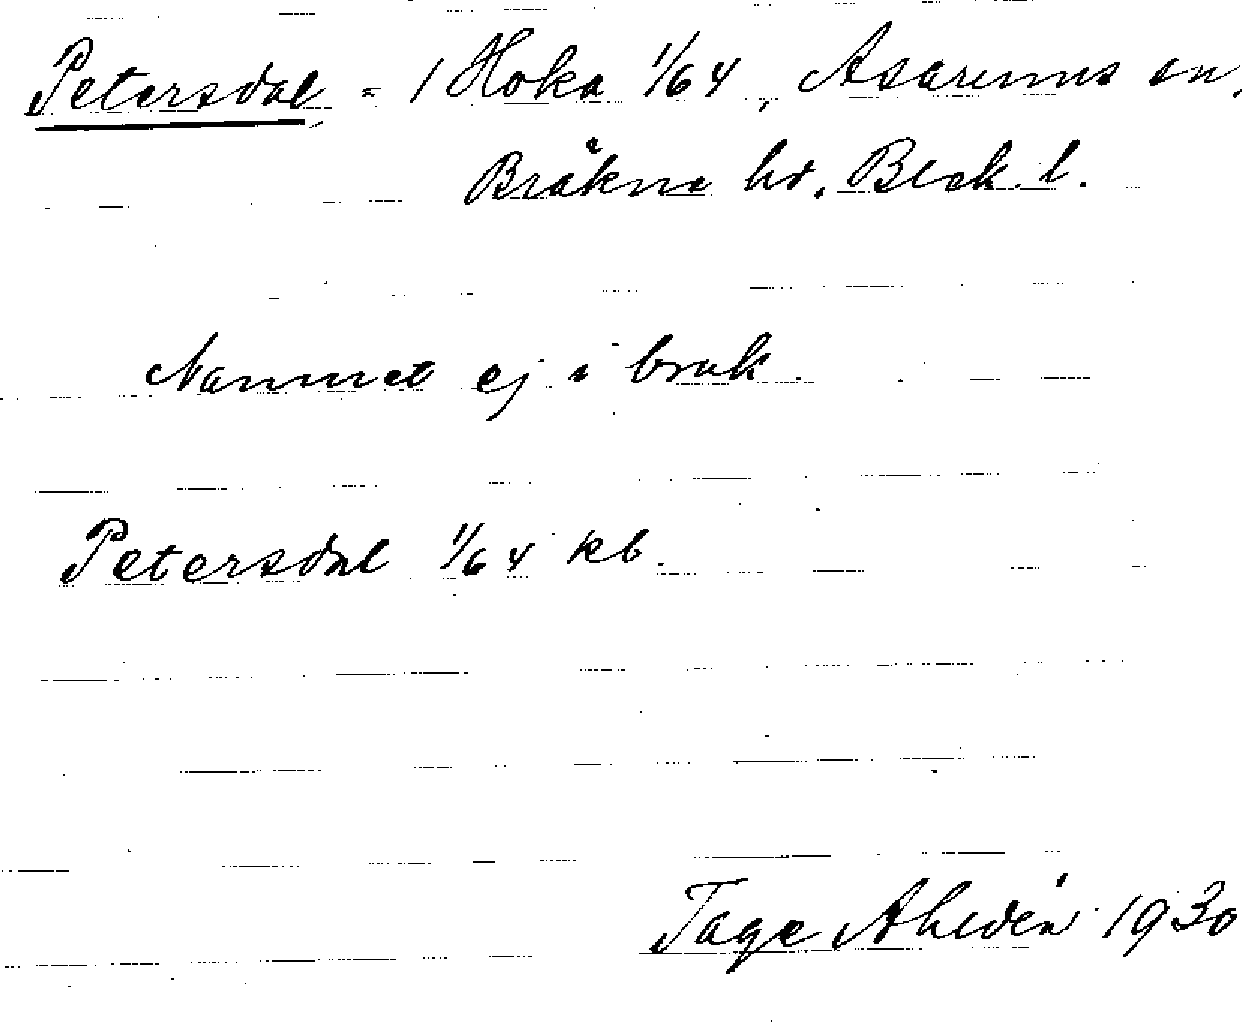 Petersdal = 1 Hoka 1/64, Asarums sn,
Bräkne hd. Blek. l.
Namnet ej i bruk.
Petersdal 1/64 kb.
Tage Ahldén 1930